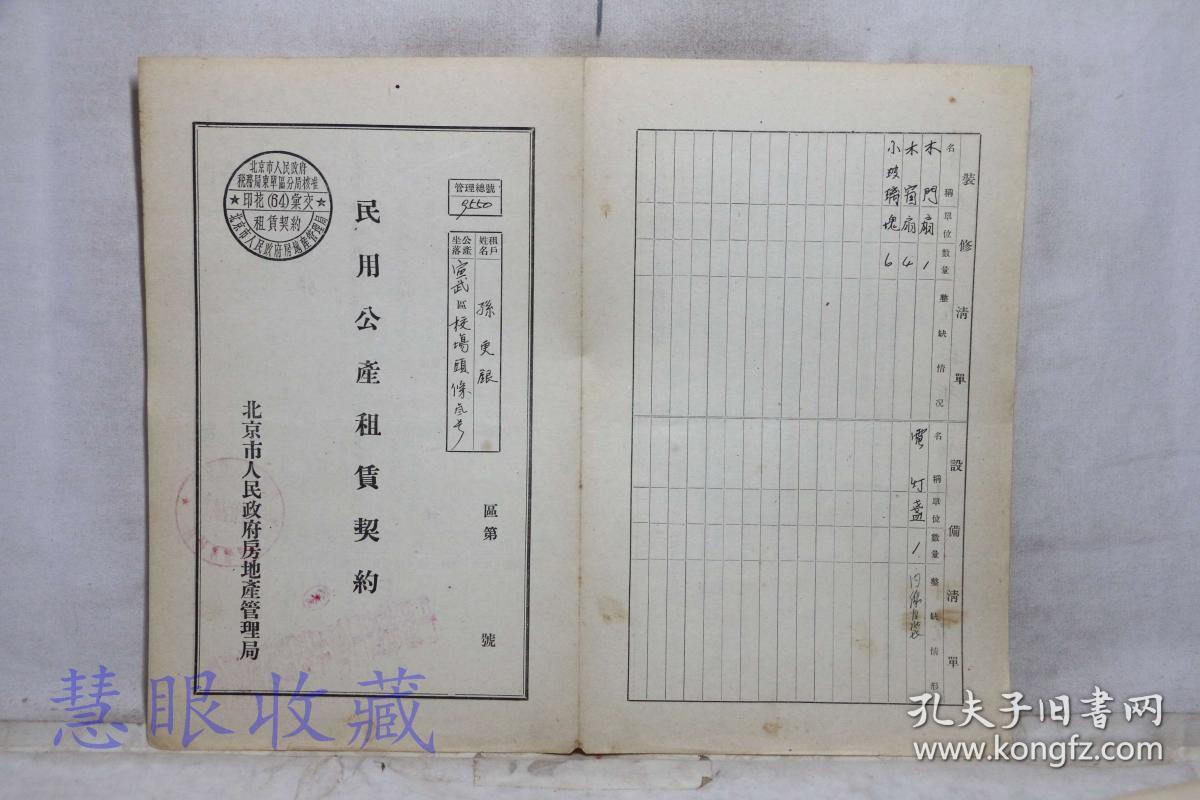 民用公產租賃契約
北京市人民政府房地產管理局
北京市人民政府
稅務局東單區分局核准
★印花(64)彙交★
租賃契約
北京市人民政府房地產管理局
管理總號
9550
租戶姓名
孫更銀
公產坐落
宣武區校場頭條
號
區第
號
裝修清單
名稱 單位 數量 整缺情況
木門 扇 1
木窗 扇 4
小玻璃 塊 6
設備清單
名稱 單位 數量 整缺情形
電灯 盞 1
慧眼收藏
孔夫子旧书网
www.kongfz.com